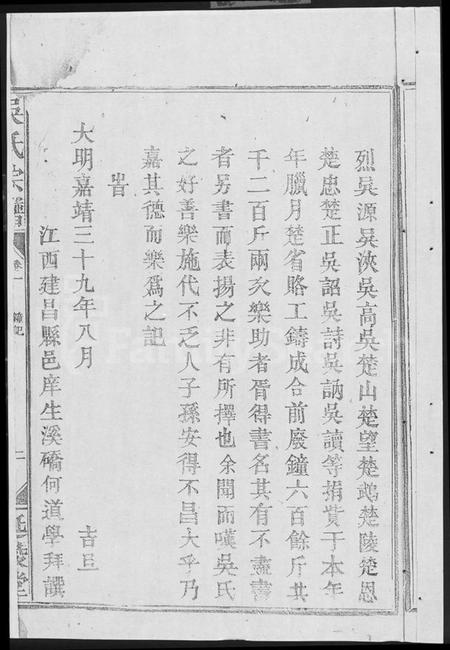 烈吳源吳浹吳高吳楚山楚望楚鵡楚陵楚恩
楚忠楚正吳詔吳詩吳訥吳讀等捐貲于本年
年臘月楚省賂工鑄成合前廢鐘六百餘斤共
千二百斤兩次樂助者胥得書名其有不盡書
者另書而表揚之非有所擇也余聞而嘆吳氏
之好善樂施代不乏人子孫安得不昌大乎乃
嘉其德而樂為之記
旹
大明嘉靖三十九年八月 吉旦
江西建昌縣邑庠生溪礄何道學拜譔
吳氏宗譜 卷一 雜記 二